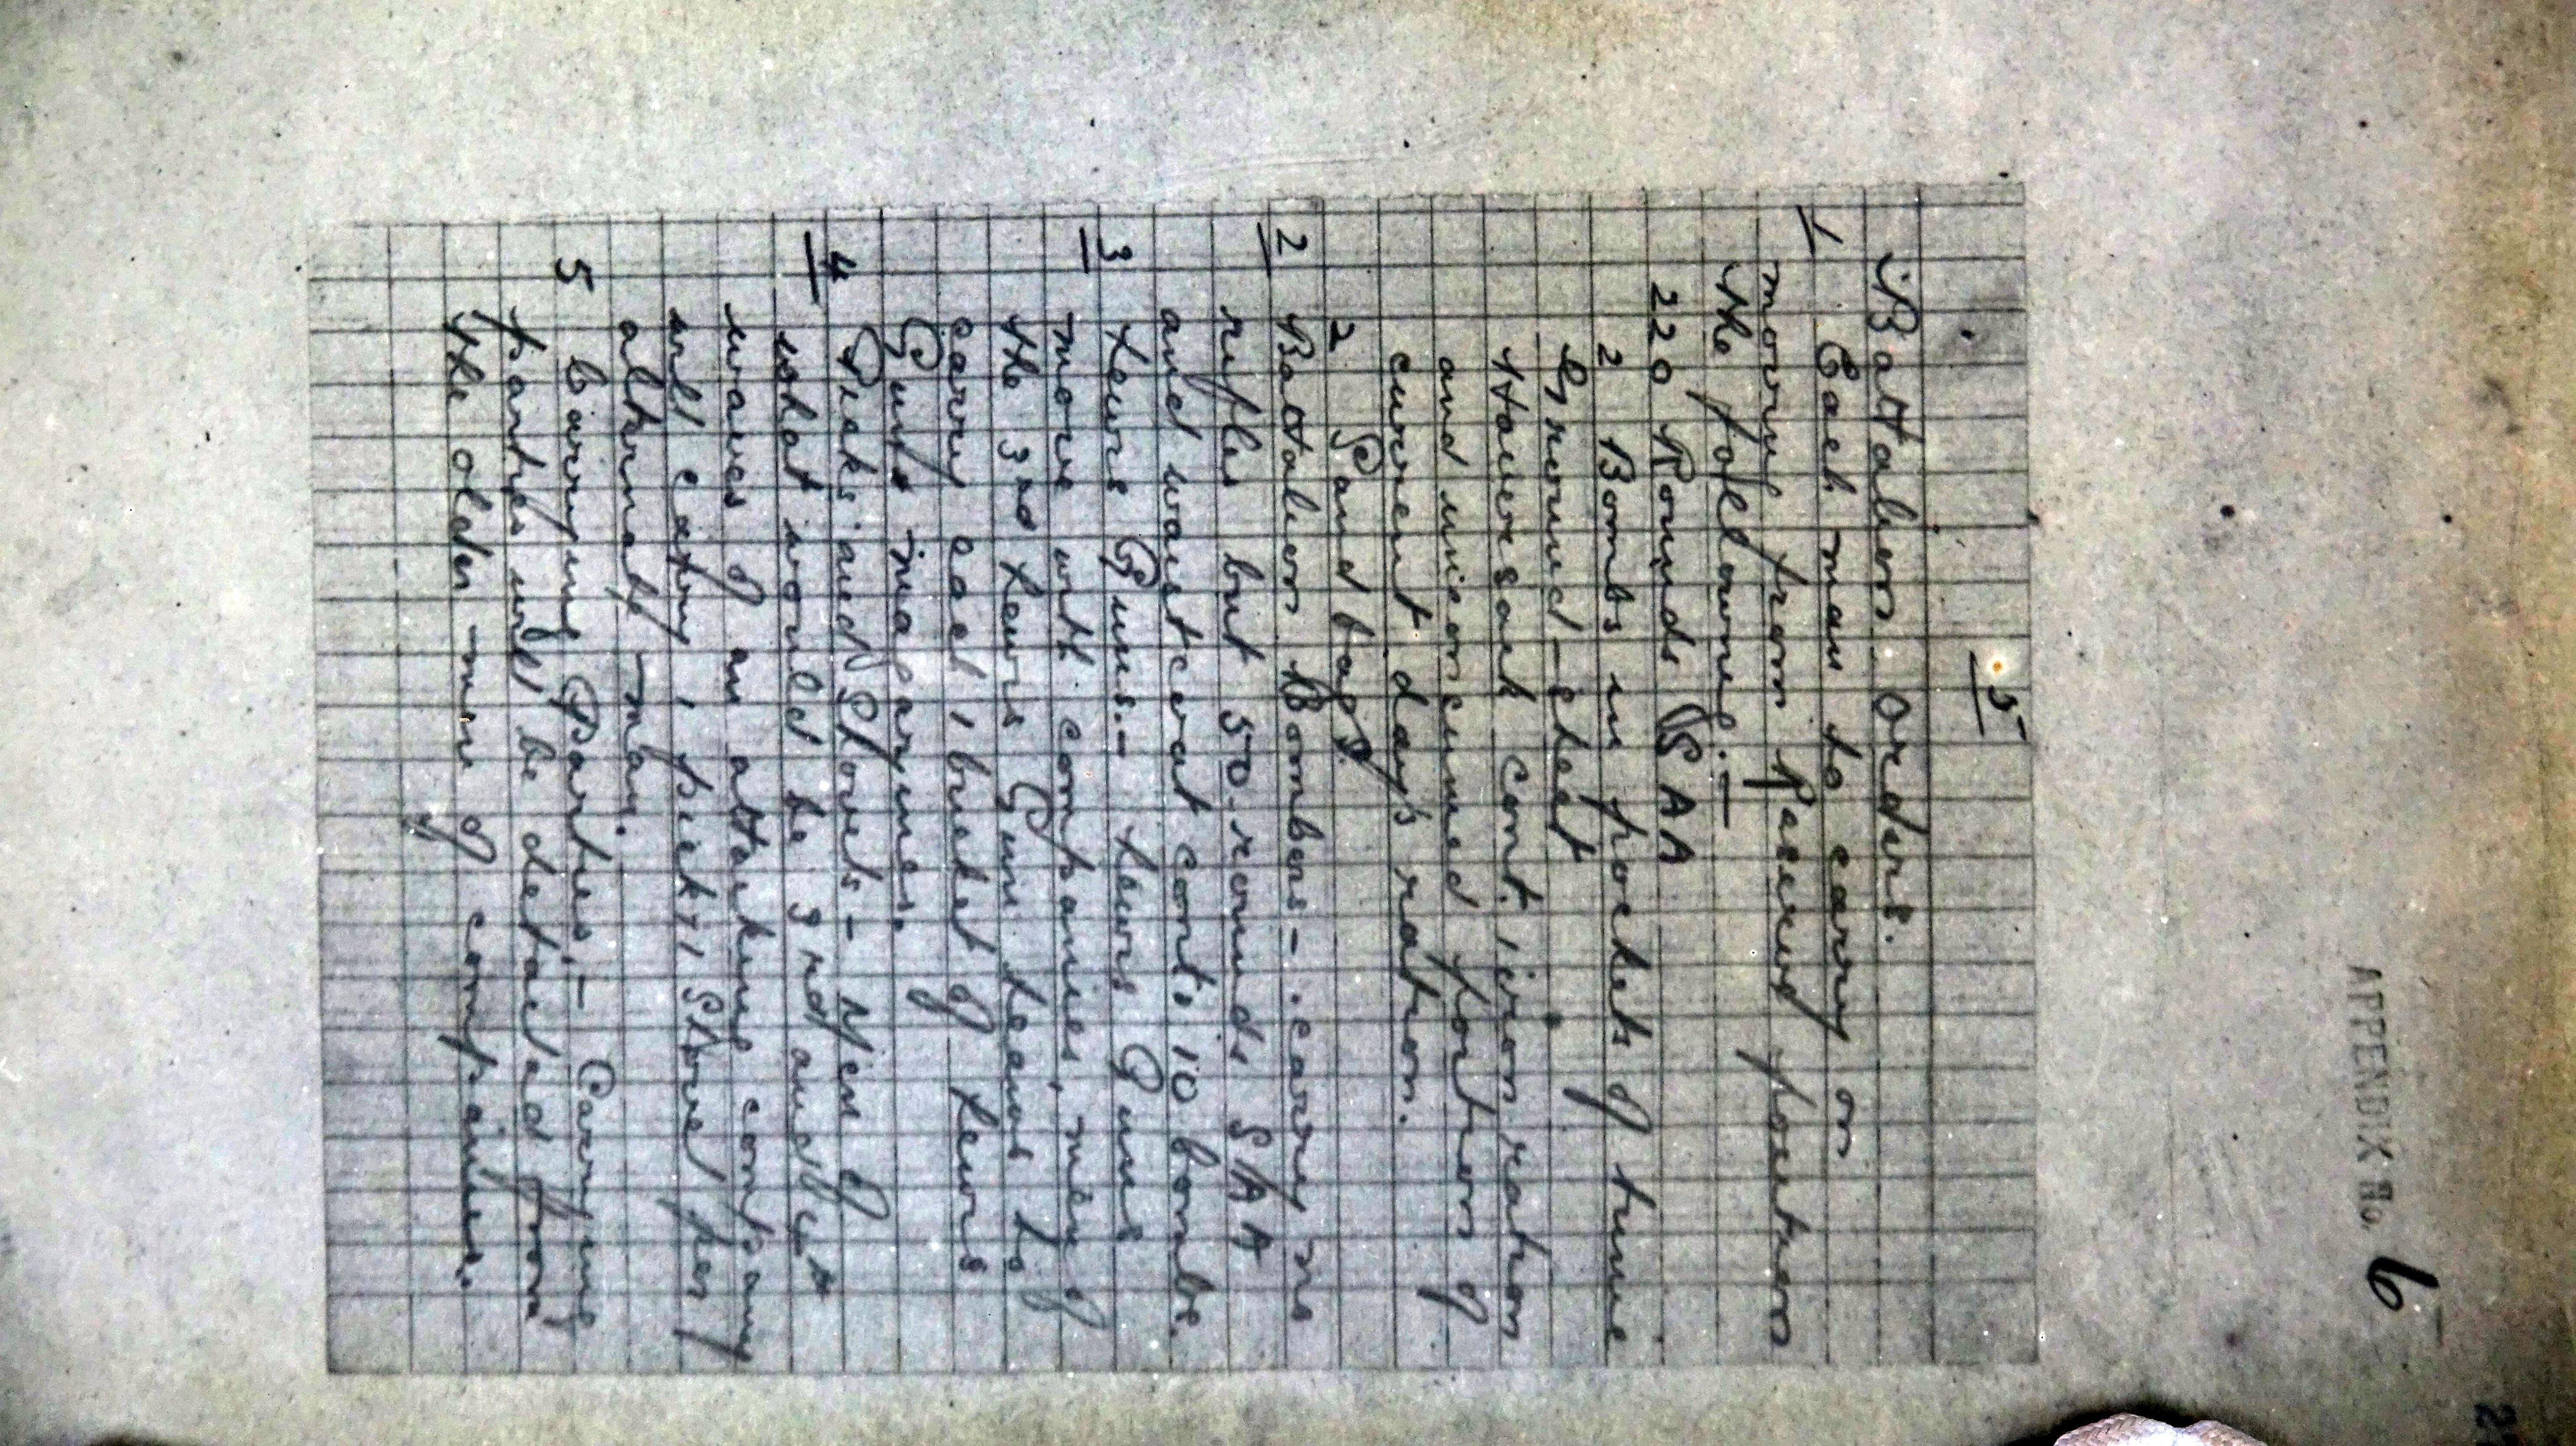 APPENDIX No. 6
5
Battalion Orders.
1 Each man to carry on
moving from Passing position
the following:-
220 Rounds SAA
2 Bombs in pockets of tunic
Ground-sheet
Haversack cont. 1 iron ration
and unconsumed portion of
current day's ration.
2 Sandbags.
2 Battalion Bombers - carry no
rifles but 50 rounds SAA
and waistcoat conts 10 bombs.
3 Lewis Guns. - Lewis Guns
move with companies, men of
the 3rd Lewis Gun teams to
carry each 1 bucket of Lewis
Guns magazines.
4 Picks and Shovels - Men of
what would be 3rd and
waves of an attacking company
will carry 1 pick, 1 Shovel per
alternate man.
5 Carrying Parties. - Carrying
parties will be detailed from
the older men of companies.